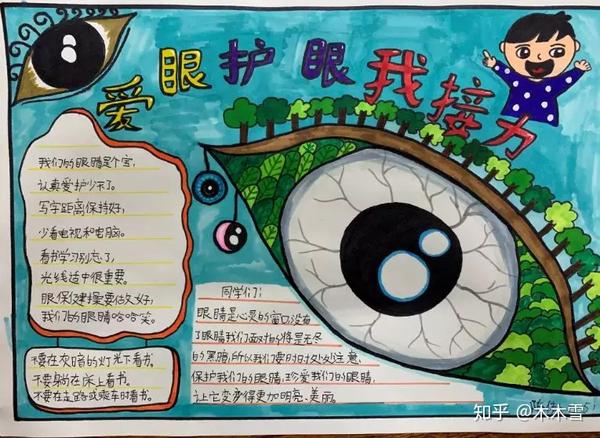 爱眼护眼我接力
我们的眼睛是个宝,
认真爱护少不了。
写字距离保持好,
少看电视和电脑。
看书学习别忘了,
光线适中很重要。
眼保健操要做好,
我们的眼睛哈哈笑。
不要在灰暗的灯光下看书。
不要躺在床上看书。
不要在走路或乘车时看书。
同学们:
眼睛是心灵的窗口没有
了眼睛我们面对的将是无尽
的黑暗,所以我们要时时处处注意,
保护我们的眼睛,珍爱我们的眼睛,
让它变得更加明亮、美丽。
知乎 @木木雪